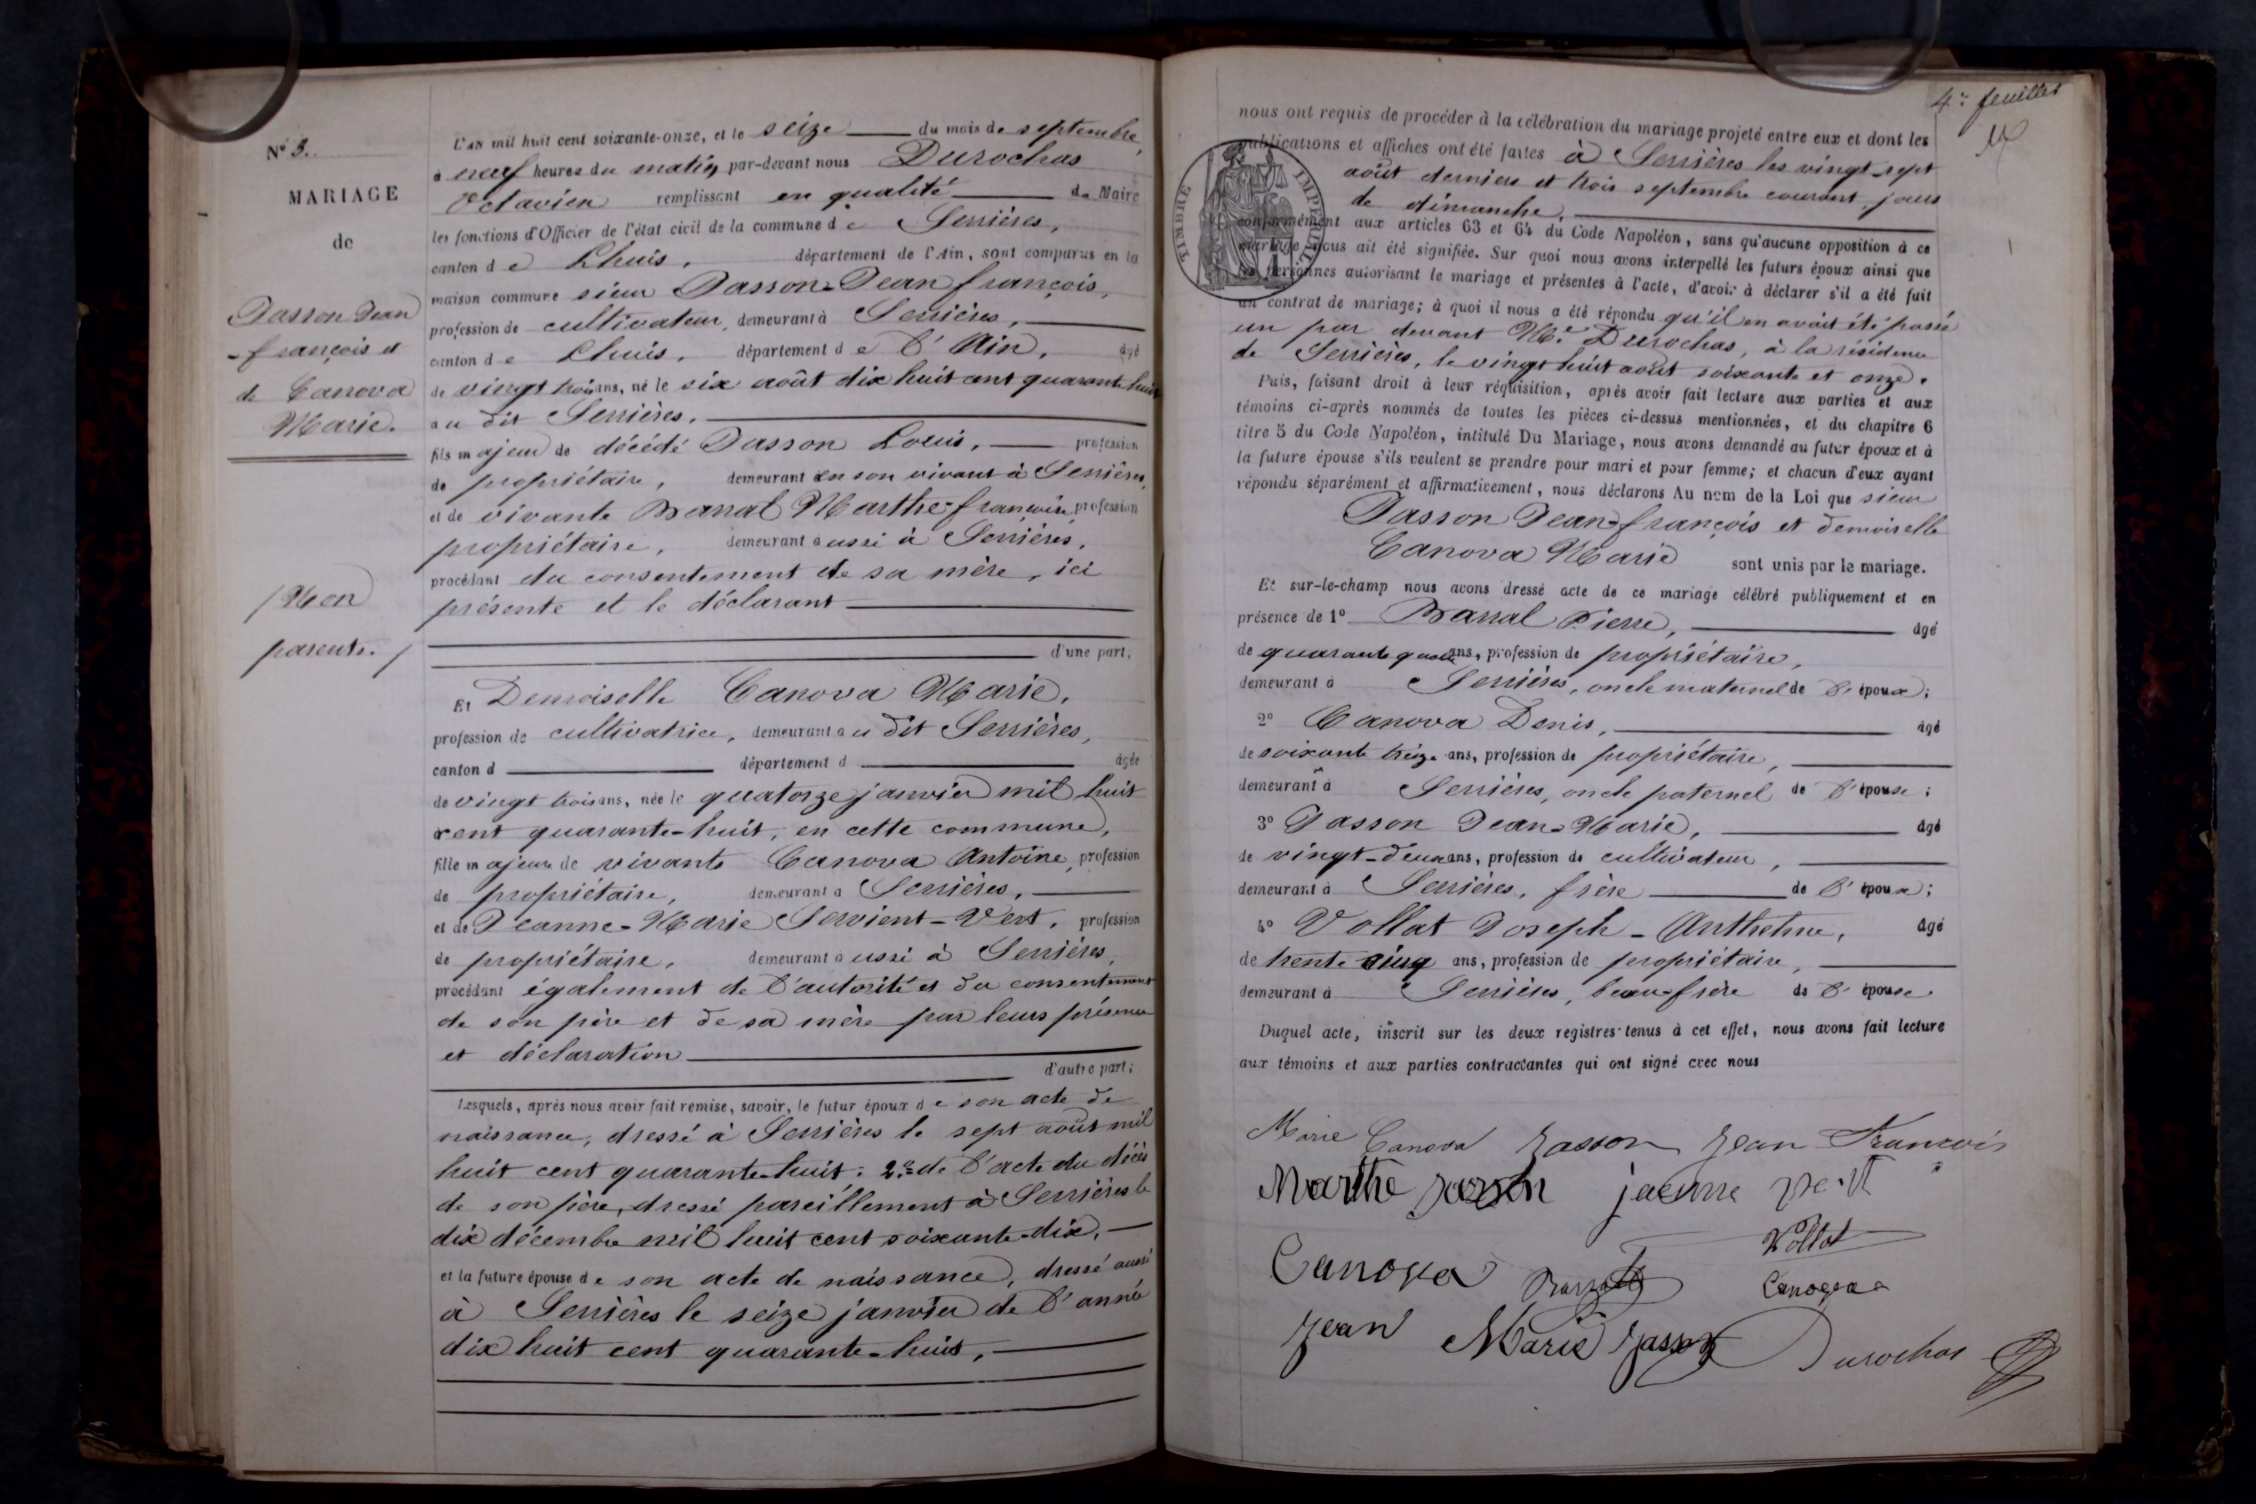 N° 3.
MARIAGE
de
Jasson Jean
-françois et
de Canova
Marie.
/ Non
parents. /
L'an mil huit cent soixante-onze, et le seize du mois de septembre,
à neuf heures du matin par-devant nous Durochas
Octavien remplissant en qualité de Maire
les fonctions d'Officier de l'état civil de la commune de Serrières,
canton de Lhuis, département de l'Ain, sont comparus en la
maison commune sieur Jasson-Jean françois,
profession de cultivateur, demeurant à Serrières,
canton de Lhuis, département de l'Ain, âgé
de vingt trois ans, né le six août dix huit cent quarante huit
au dit Serrières.
fils majeur de décédé Jasson Louis, profession
de propriétaire, demeurant en son vivant à Serrières,
et de vivante Barral Marthe-françoise, profession
propriétaire, demeurant aussi à Serrières,
procédant du consentement de sa mère, ici
présente et le déclarant
d'une part,
Et Demoiselle Canova Marie,
profession de cultivatrice, demeurant au dit Serrières,
canton d département d âgée
de vingt trois ans, née le quatorze janvier mil huit
cent quarante-huit, en cette commune,
fille majeure de vivants Canova Antoine, profession
de propriétaire, demeurant à Serrières,
et de Jeanne-Marie Servient-Vert, profession
de propriétaire, demeurant aussi à Serrières,
procédant également de l'autorité et du consentement
de son père et de sa mère par leurs présence
et déclaration
d'autre part;
Lesquels, après nous avoir fait remise, savoir, le futur époux de son acte de
naissance, dressé à Serrières le sept août mil
huit cent quarante-huit; 2° de l'acte du décès
de son père, dressé pareillement à Serrières le
dix décembre mil huit cent soixante-dix,
et la future épouse de son acte de naissance, dressé aussi
à Serrières le seize janvier de l'année
dix huit cent quarante-huit,
4e feuillet
nous ont requis de procéder à la célébration du mariage projeté entre eux et dont les
publications et affiches ont été faites à Serrières les vingt-sept
août derniers et trois septembre courant, jours
de dimanche,
TIMBRE IMPERIAL
conformément aux articles 63 et 64 du Code Napoléon, sans qu'aucune opposition à ce
mariage nous ait été signifiée. Sur quoi nous avons interpellé les futurs époux ainsi que
les personnes autorisant le mariage et présentes à l'acte, d'avoir à déclarer s'il a été fait
un contrat de mariage; à quoi il nous a été répondu qu'il en avait été passé
un par devant Me Durochas, à la résidence
de Serrières, le vingt huit août soixante et onze.
Puis, faisant droit à leur réquisition, après avoir fait lecture aux parties et aux
témoins ci-après nommés de toutes les pièces ci-dessus mentionnées, et du chapitre 6
titre 5 du Code Napoléon, intitulé Du Mariage, nous avons demandé au futur époux et à
la future épouse s'ils veulent se prendre pour mari et pour femme; et chacun d'eux ayant
répondu séparément et affirmativement, nous déclarons Au nom de la Loi que sieur
Jasson Jean-françois et demoiselle
Canova Marie sont unis par le mariage.
Et sur-le-champ nous avons dressé acte de ce mariage célébré publiquement et en
présence de 1° Barral Pierre, âgé
de quarante quatre ans, profession de propriétaire,
demeurant à Serrières, oncle maternel de l'époux;
2° Canova Denis, âgé
de soixante treize ans, profession de propriétaire,
demeurant à Serrières, oncle paternel de l'épouse;
3° Jasson Jean-Marie, âgé
de vingt-deux ans, profession de cultivateur,
demeurant à Serrières, frère de l'époux;
4° Vollat Joseph-Anthelme, âgé
de trente cinq ans, profession de propriétaire,
demeurant à Serrières, beau-frère de l'épouse.
Duquel acte, inscrit sur les deux registres tenus à cet effet, nous avons fait lecture
aux témoins et aux parties contractantes qui ont signé avec nous
Marie Canova Jasson Jean Francois
Marthe Jasson
Vollat
Canova
Canova
Jean Marie Jasson Durochas